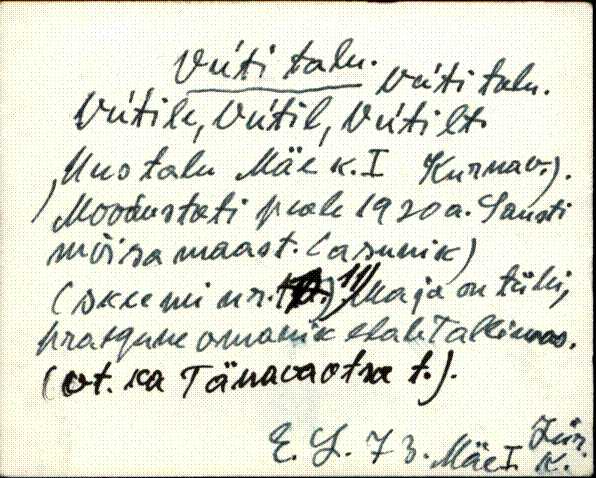 Vúti talu. Vúti talu.
Vútile, Vútil, Vútilt.
Uus talu Mäe k. I Kurnav.).
Moodustati peale 1920 a. Sausti
mõisa maast. (asunik)
(skeemi nr. 11) Maja on tühi,
praegune omanik elab Tallinnas.
(vt. ka Tänavaotsa t.).
E. L. 73. Mäe I k. Jür.